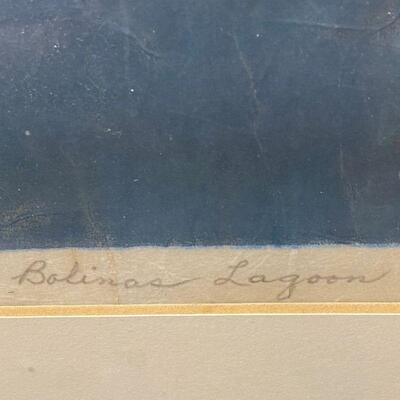 Bolinas Lagoon